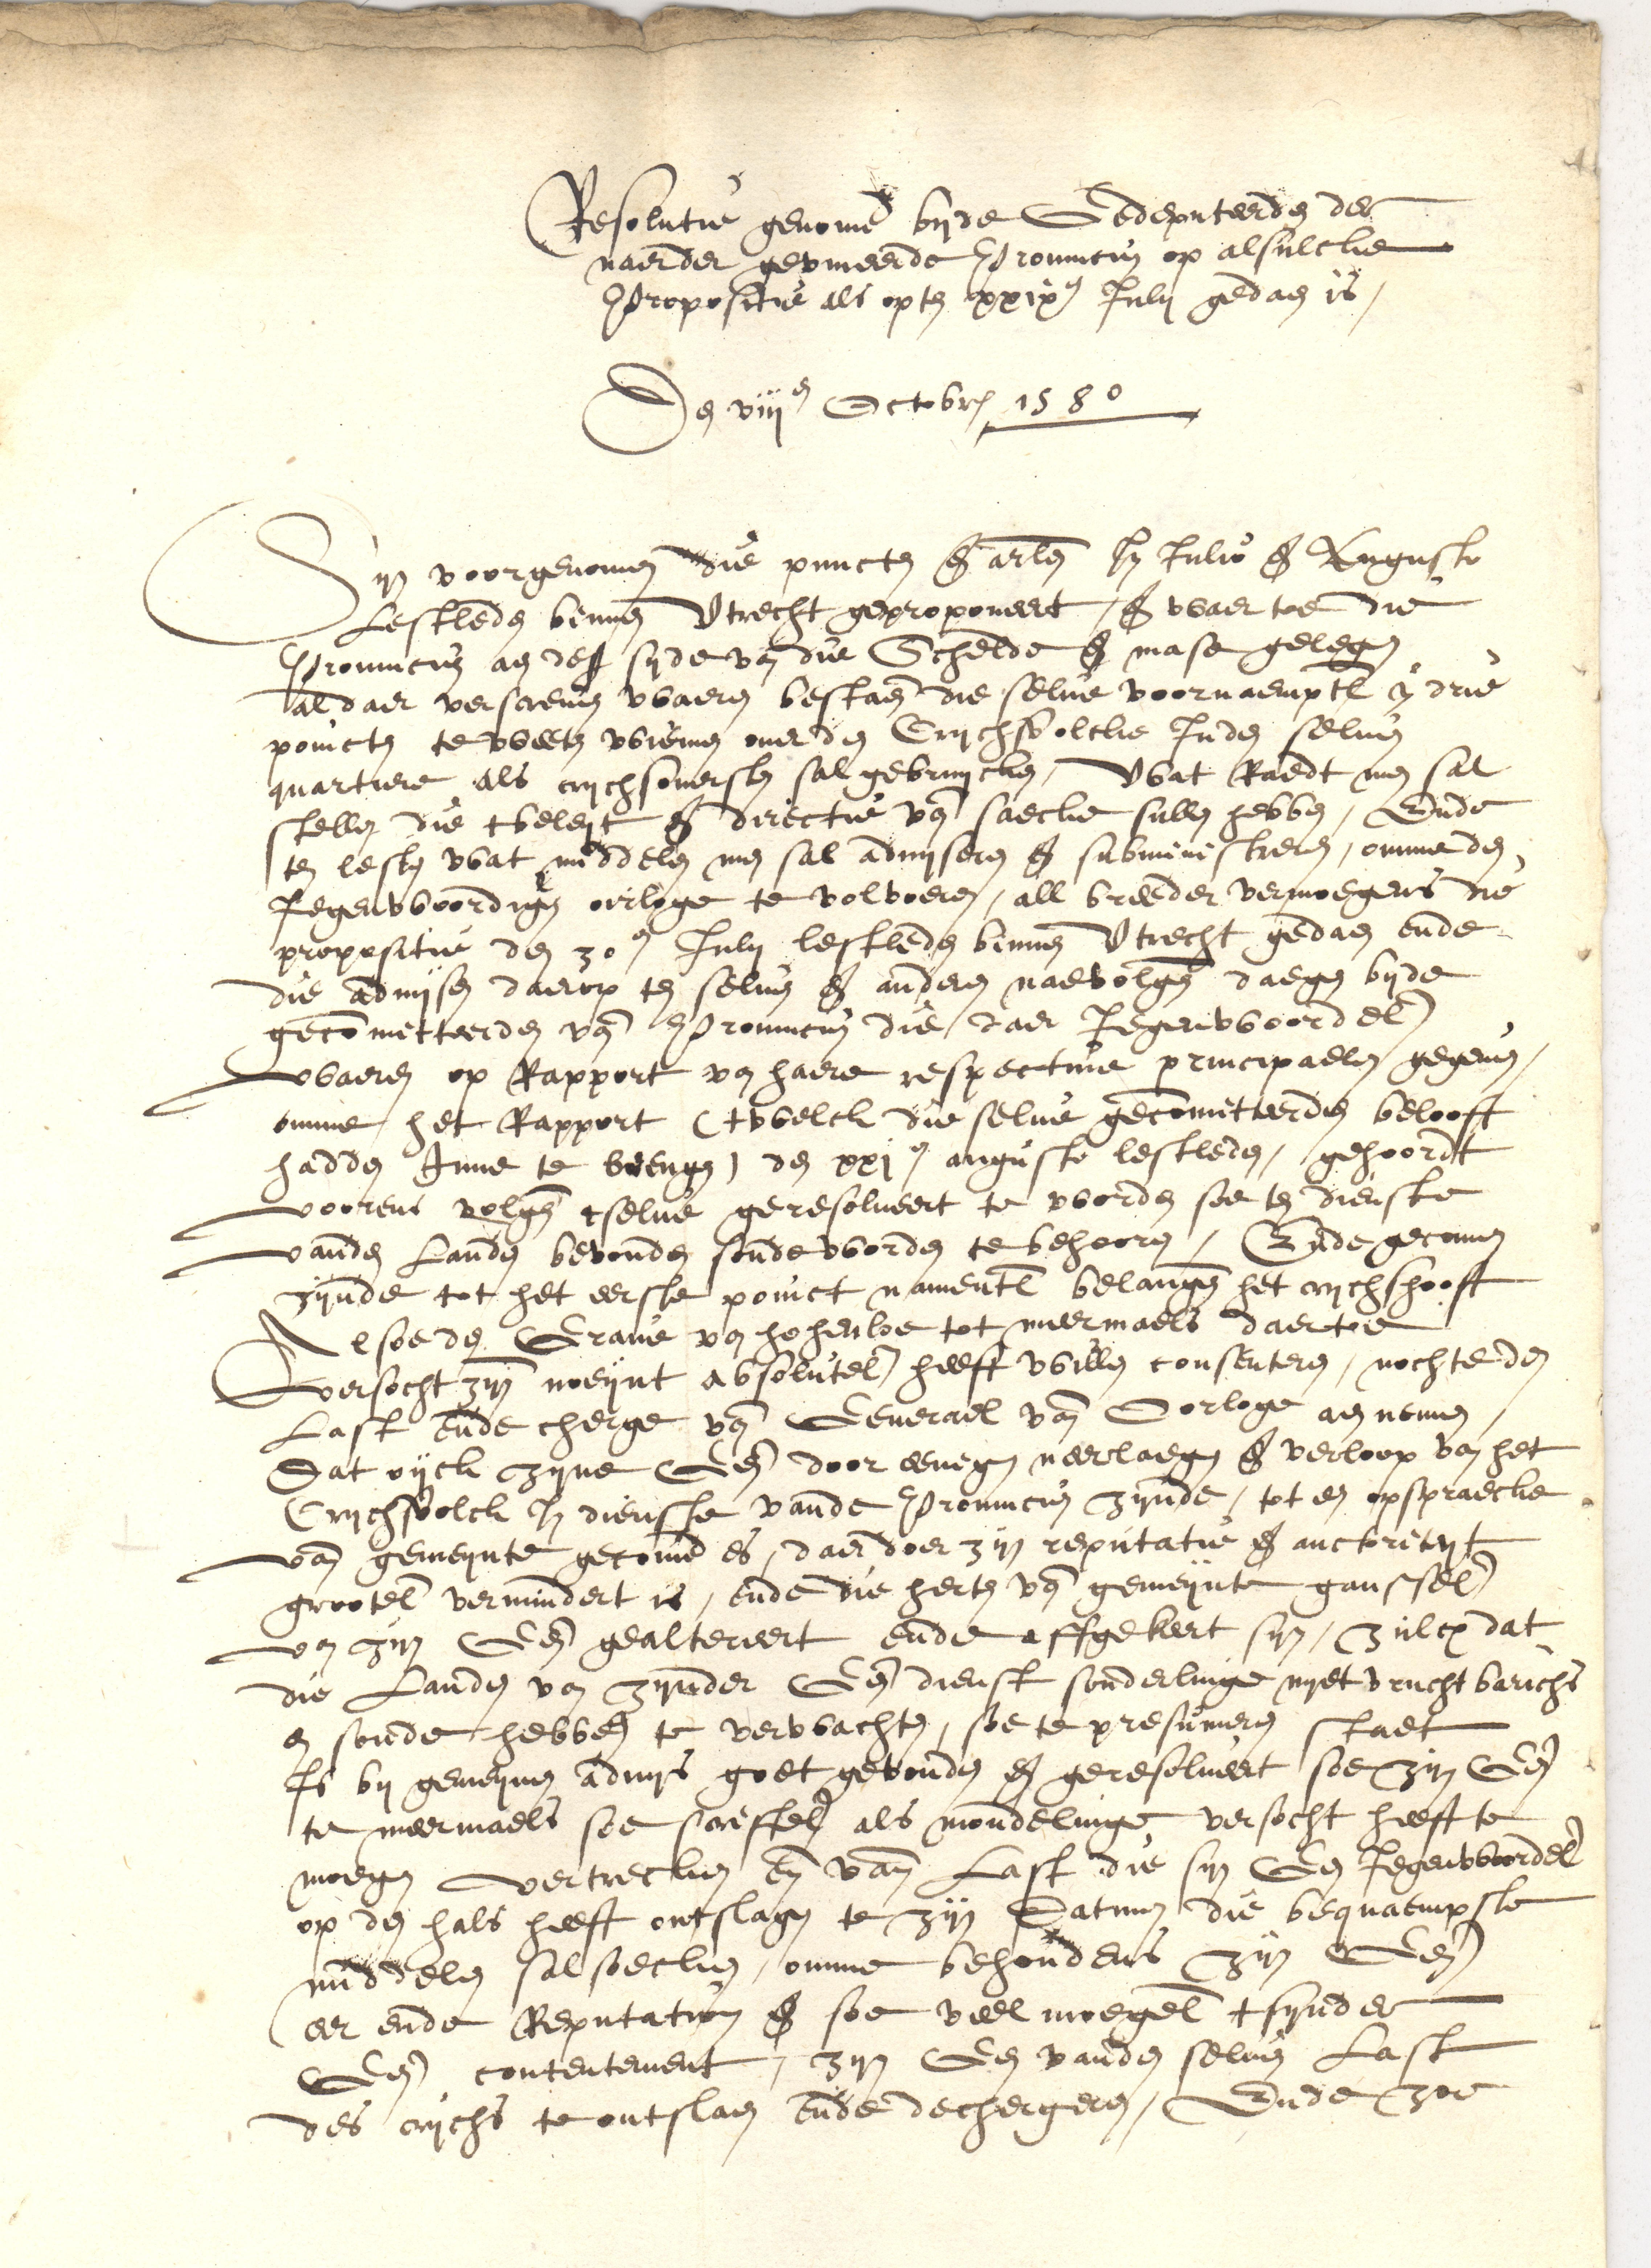 Resolutie genomen bijde Gedeputeerde der
naerder geunieerde Provincien op alsulcke
Propositie als opten xxixen July gedaen is,
Den viijen Octobris 1580
Sijn voorgenomen die puncten ende articlen In Julio ende Augusto
Lestleden binnen Utrecht geproponeert, ende waer toe die
Provincien aen dese syde van die Schelde ende mase gelegen
aldaer verscreven waeren bestaen die selve voornaemptl. in drie
poincten te weeten wiemen over den Crychsvolcke Inden selven
quartiere als crychsoversten sal gebruycken, Wat Raedt men sal
stellen die tbeleyt ende directie van saecke sullen hebben, Ende
ten lesten wat middelen men sal adviseren ende subministreren, omme den
Jegenwoordigen oirloge te volvoeren, all breeder vermoegens die
propositie den 30en July lestleden binnen Utrecht gedaen ende
die advijsen daerop ten selven ende anderen naevolgen daegen bijde
gecommitteerden van Provincien die daer Jegenwoordel.
waeren op Rapport van haere respective principaelen gegeven,
omme het Rapport (twelck die selve gecommitteerden belooft
hadden Inne te brengen) den xxjen augusto lestleden, gehoordt
voorens volgen tselve geresolveert te worden soe ten dienste
vanden Landen bevonden soude worden te behooren, Ende gecomen
zijnde tot het eerste poinct namentl. belangen het crychshooft
Alsoe den Grave van hohenloe tot meermaels daertoe
versocht zijn noeynt absolutel. heeft willen consenteren, nochte den
Last ende cherge van Generael van Oorloge aen nemen,
Dat oijck zijne Gen. door eenegen neerlaegen ende verloop van het
Crychsvolck In dienste vande Provincien zijnde, tot en opspraecke
van gemeynte gecomen es, daer door zijn reputatie ende auctoriteyt
grootel. vermindert is, ende die herten van gemeijnte gansel.
van zijn Gen. gealtereert ende affgekeert sijn, zulcx dat
die Landen van zijnder Gen. dienst sonderlinge nyet vruchtbarichs
en soude hebben te verwachten, soe te presumeren staet
Is bij gemeynen advys goet gevonden ende geresolveert soe zijn Gen.
te meermaels soe scriftel. als mondelinge versocht heeft te
moegen vertrecken en van Last die sijn Gen. Jegenwoordel.
op den hals heeft ontslagen te zijn Datmen die bequaempste
middelen sal soecken, omme behoudens zijn Gen.
eer ende Reputation ende soe veel moegel. tsynder
Gen. contentement, zijn Gen. vanden selven Last
des crychs te ontslaen ende dechergeren, Ende zoe